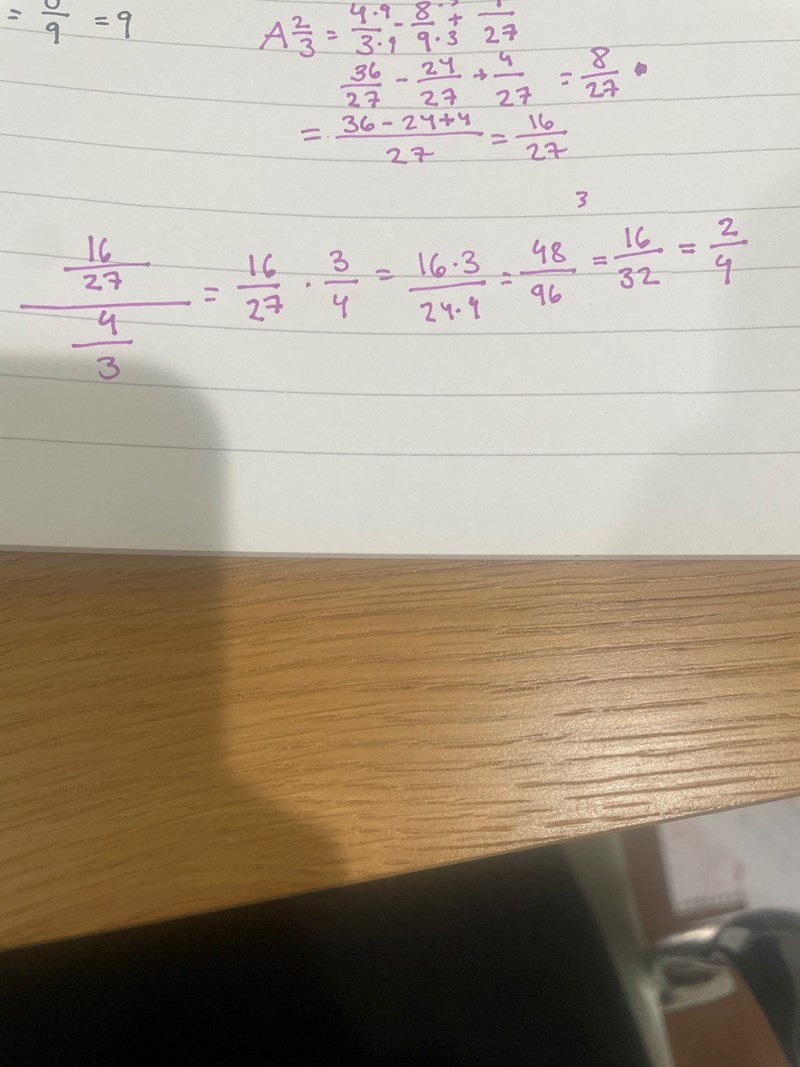 = 9/9 = 9
A 2/3 = 4·9/3·9 - 8/9·3 + 4/27
36/27 - 24/27 + 4/27 = 8/27
= 36 - 24 + 4/27 = 16/27
3
16/27/4/3 = 16/27 · 3/4 = 16·3/24·4 = 48/96 = 16/32 = 2/4